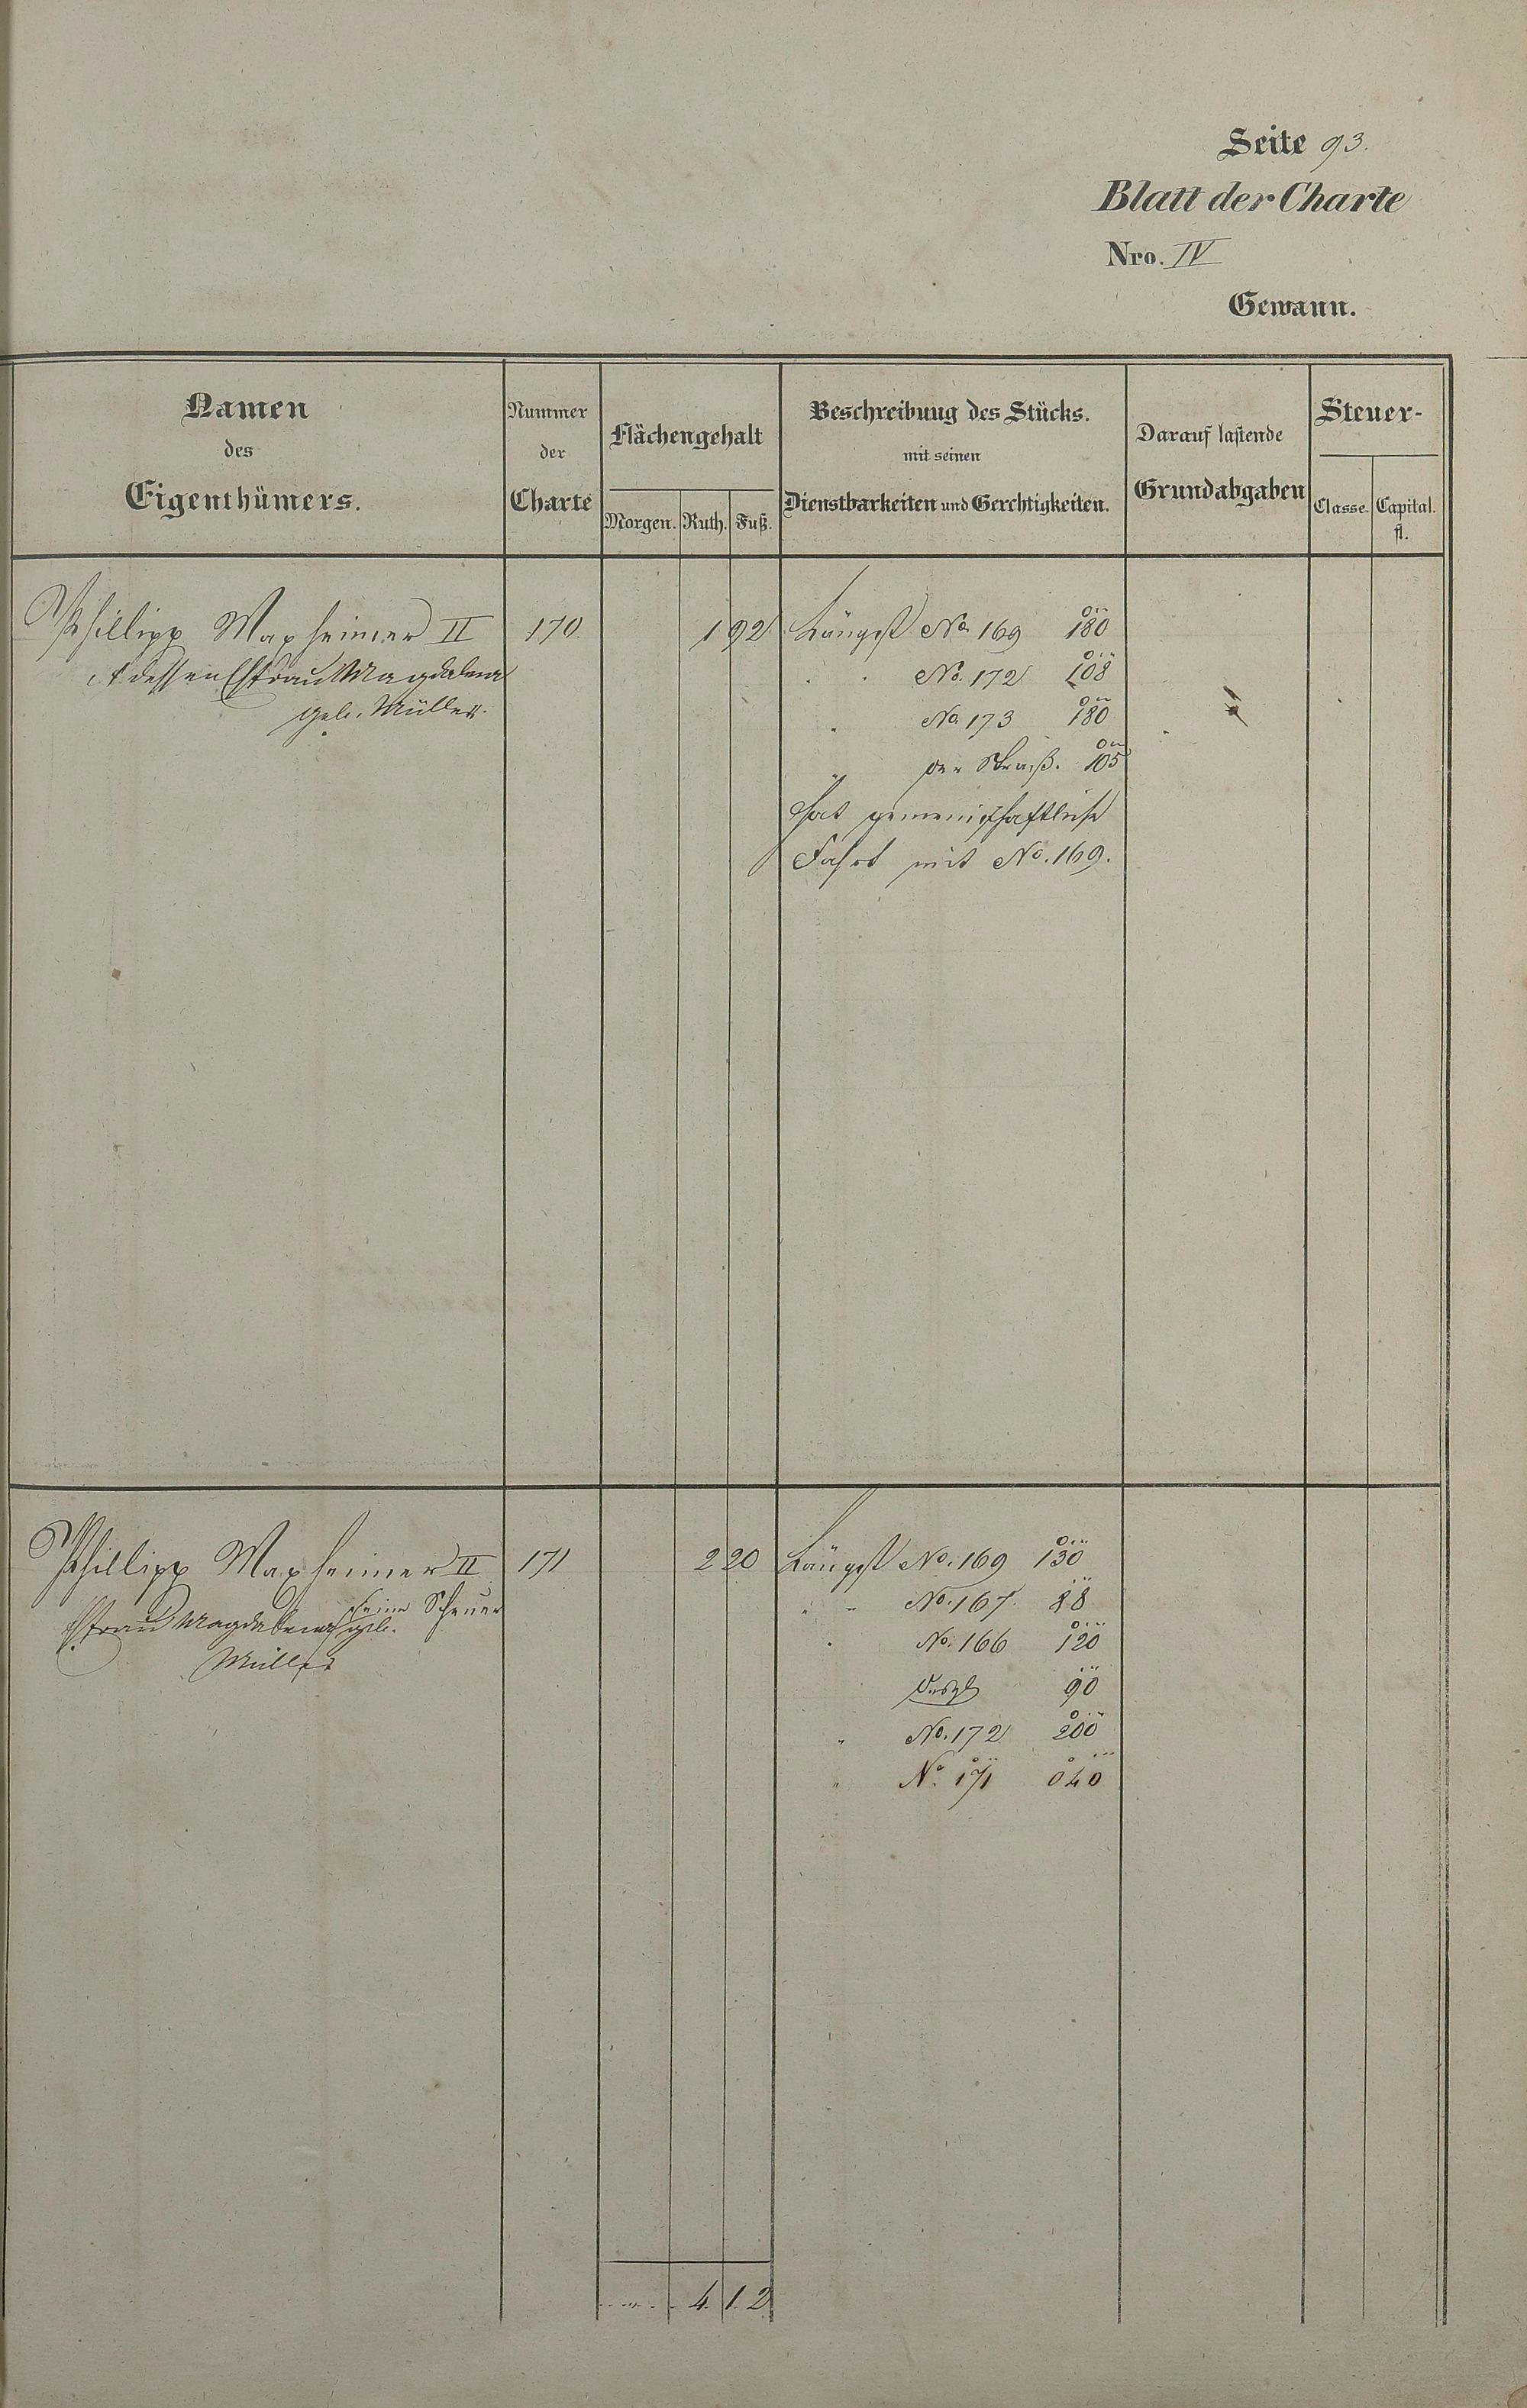 Seite 93.
Blatt der Charte
Nro. IV
Gewann.
Namen
des
Eigenthümers.
Nummer
der
Charte
Flächengehalt
Morgen. Ruth. Fuß.
Beschreibung des Stücks.
mit seinen
Dienstbarkeiten und Gerchtigkeiten.
Darauf lastende
Grundabgaben
Steuer-
Classe. Capital.
fl.
Phillipp Maxheimer II 170. 1 92 Längst No. 169 180
& dessen Ehfrau Magdalena " " No. 172 108
geb. Müller. " No. 173 180
" der Straß. 105
Hat gemeinschaftliche
Fahrt mit No. 169.
Phillipp Maxheimer II 171 2 20 Längst No. 169 130
Scheuer " " No. 167 88
Ehfrau Magdalena geb. " No. 166 120
Müller 90
" No. 172 200
" No. 171 040
4 12